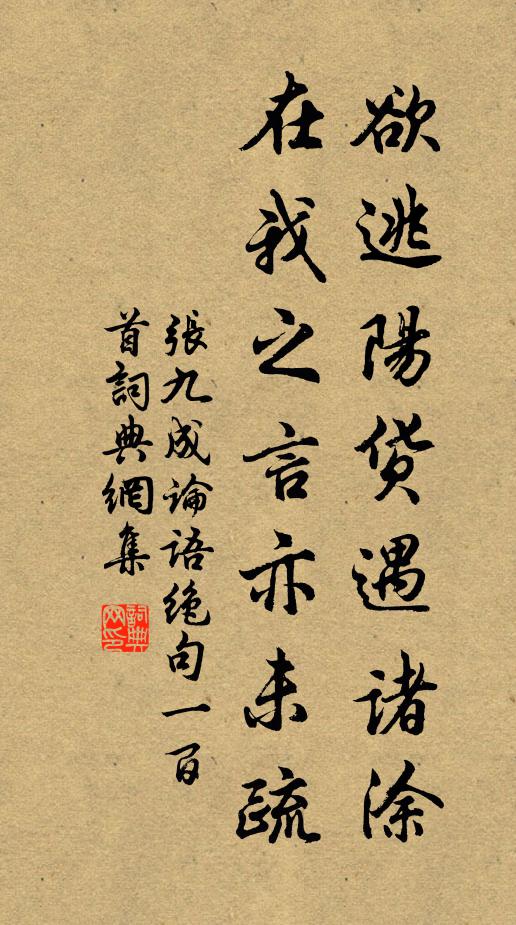 欲逃陽货遇諸涂
在我之言亦未疏
張九成論語绝句一百
首詞典網集
詞典网印